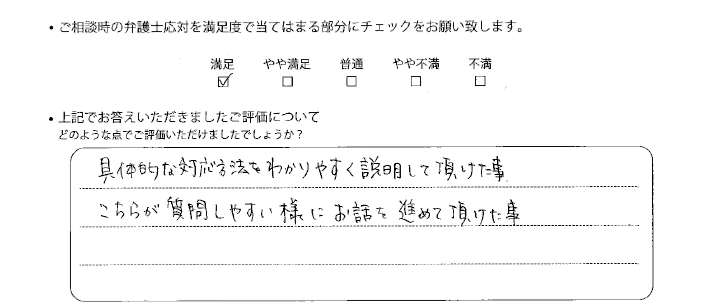 ・ご相談時の弁護士応対を満足度で当てはまる部分にチェックをお願い致します。
満足 やや満足 普通 やや不満 不満
☑ □ □ □ □
・上記でお答えいただきましたご評価について
どのような点でご評価いただけましたでしょうか？
具体的な対応方法をわかりやすく説明して頂けた事
こちらが質問しやすい様にお話を進めて頂けた事